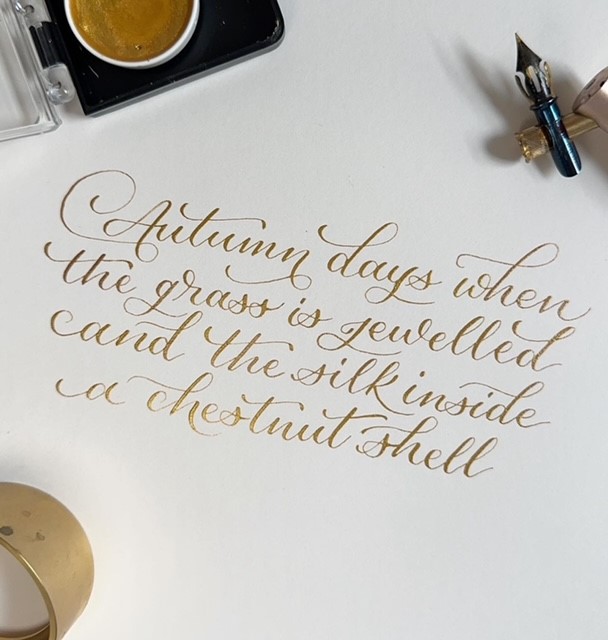 Autumn days when
the grass is jewelled
and the silk inside
a chestnut shell